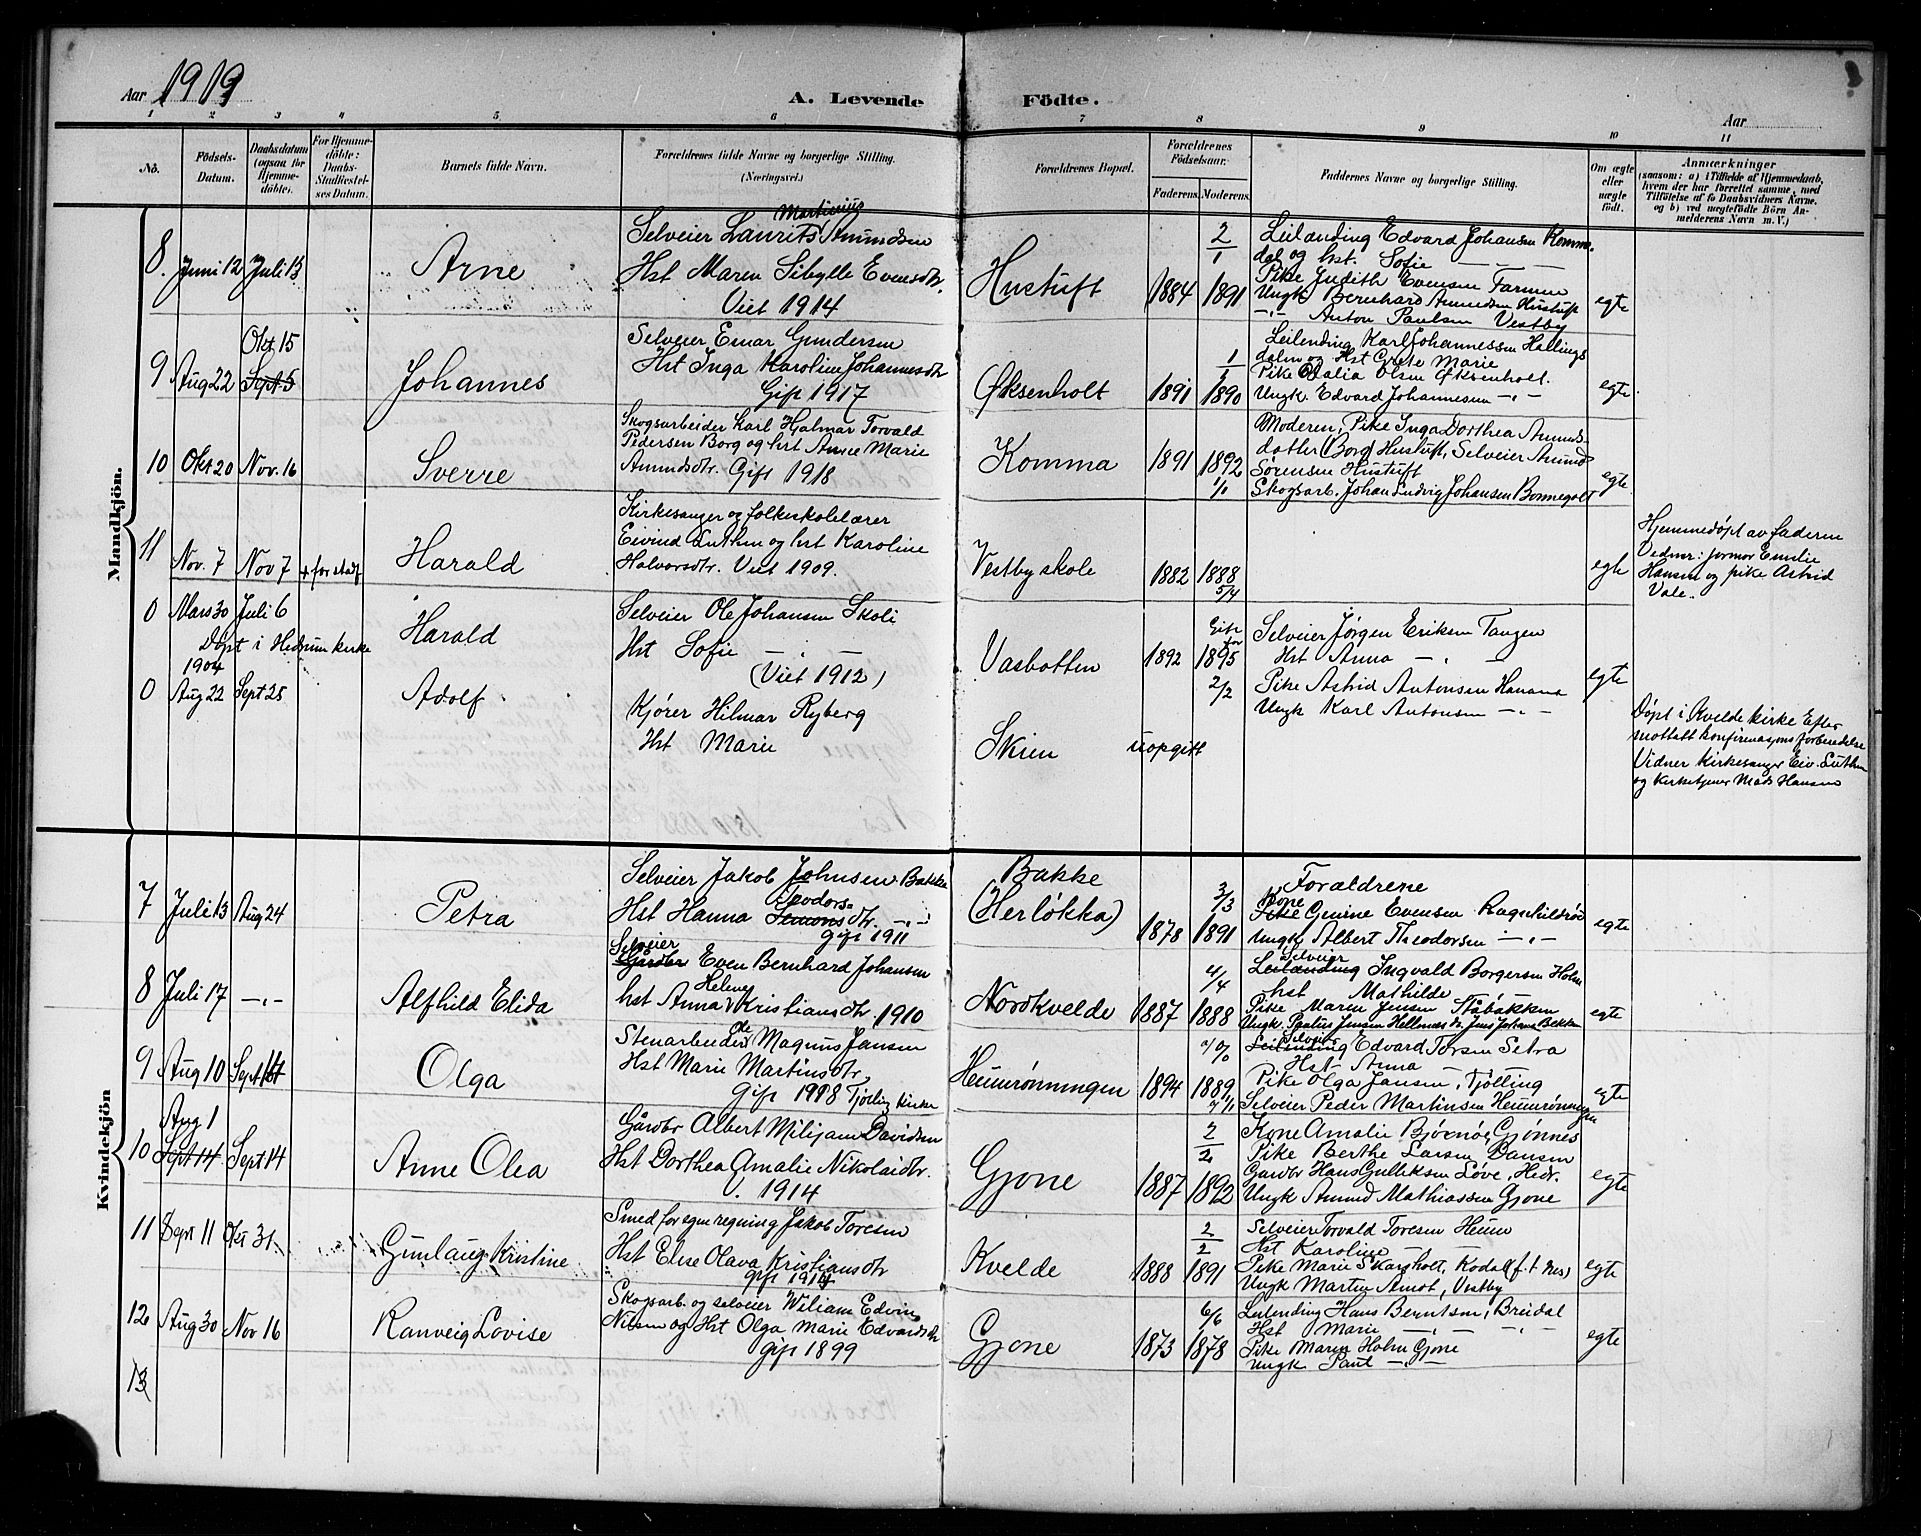 Aar 1919
A. Levende Födte.
Aar
1 2 3 4 5 6 7 8 9 10 11
No.
Födsels-Datum.
Daabsdatum (ogsaa for Hjemmedöbte).
For Hjemmedöbte: Daabs-Stadfæstelses Datum.
Barnets fulde Navn.
Forældrenes fulde Navne og borgerlige Stilling. (Næringsvei.)
Forældrenes Bopæl.
Forældrenes Födselsaar.
Faderens. Moderens.
Faddernes Navne og borgerlige Stilling.
Om ægte eller uægte födt.
Anmærkninger
(saasom: a) i Tilfælde af Hjemmedaab,
hvem der har forrettet samme, med
Tilföielse af to Daabsvidners Navne.
og b) ved uægtefödte Börn Anmelderens Navn m. V.)
Mandkjön.
8. Juni 12 Juli 13 Arne
Selveier Laurits Martinius Amundsen
Hst Maren Sibylle Evensdtr.
Viet 1914
Hustuft 1884 2/1 1891
Leilending Edvard Johansen Komme-
dal og hst. Sofie — —
Pike Judith Evensen Farmen
Ungk Bernhard Amundsen Hustuft
—"— Anton Paulsen Vestby
egte
9 Aug 22 Okt 15 Sept 5 Johannes
Selveier Einar Gundersen
Hst Inga Karoline Johannesdtr
Gift 1917
Øksenholt 1891 1/1 1890
Leilending Karl Johannessen Hallings
dalen og Hst Grete Marie
Pike Otalia Olsen Øksenholt.
Ungk. Edvard Johannesen —"—
egte
10 Okt 20 Nov. 16 Sverre
Skogsarbeider Karl Hjalmar Torvald
Pedersen Borg og hst Anne Marie
Amundsdtr. Gift 1918
Komma 1891 1892 1/10
Moderen, Pike Inga Dorthea Amunds-
datter (Borg) Hustuft, Selveier Amund
Sørensen Hustuft
Skogsarb. Johan Ludvig Johansen Bonnegolt
egte
11 Nov. 7 Nov 7 + før stadf Harald
Kirkesanger og folkeskolelærer
Eivind Luthen og hst Karoline
Halvorsdtr. Viet 1909.
Vestby skole 1882 1888 5/4
egte
Hjemmedøpt av faderen
Vidner: jormor Emilie
Hansen og pike Astrid
Vale.
0 Mars 30 Juli 6 Harald
Døpt i Hedrum kirke
Selveier Ole Johansen Skoli
Hst Sofie —"—
(Viet 1912)
Vasbotten 1892 1895 2/2
Selveier Jørgen Eriksen Tangen
Hst Anna —"—
Pike Astrid Antonsen Hanana
Ungk Karl Antonsen —"—
egte
1904
0 Aug 22 Sept 28 Adolf
Kjører Hilmar Ryberg
Hst Marie
Skien uopgitt
Døpt i Kvelde kirke Efter
mottatt konfirmasjonsforberedelse
Vidner kirkesanger Eiv. Luthen
og kirketjener Mads Hansen
Kvindekjön
7 Juli 13 Aug 24 Petra
Selveier Jakob Johnsen Bakke
Hst Hanna Simons Teodorsdtr. —"—
Gift 1911
Bakke
(Herløkka) 1878 3/3 1891
Forældrene
Pike Kone Gurine Evensen Ragnhildrød
Ungk Albert Theodorsen —"—
egte
8 Juli 17 —"— Alfhild Elida
Gårdbr Selveier Even Bernhard Johansen
hst Anna Helene Kristiansdtr. 1910
Nordkvelde 1887 4/4 1888
Leilending Selveier Ingvald Borgersen Holm
hst Mathilde
Pike Maren Jensen Ståbakken
Ungk. Paulus Jensen Hellenes
egte
9 Aug 10 Sept 14 Olga
Stenarbeider Magnus Jansen
Hst Marie Martinsdtr.
Gift 1918 Tjølling kirke
Heumrønningen 1894 1889
Leilending Selveier Edvard Torsen Setra
Hst Anna
Pike Olga Jansen, Tjølling
Selveier Peder Martinsen Heumrønningen
egte
10 Aug 1 Sept 14 Sept 14 Anne Olea
Gårdbr Albert Milijam Davidsen
Hst Dorthea Amalie Nikolaidtr.
V. 1914
Gjone 1887 2/2 1892
Kone Amalie Bjørnøe, Gjønnes
Pike Berthe Larsen Dansen
Gårdbr Hans Gulliksen Løve, Hedr.
Ungk Amund Mathiassen Gjone
egte
11 Sept 11 Okt 31 Gunlaug Kristine
Smed for egen regning Jakob Toresen
Hst Elise Olava Kristiansdtr
gift 1914
Kvelde 1888 2/2 1891
Selveier Torvald Toresen Heum
Hst Karoline — —
Pike Marie Skarsholt, Kodal (f. t. Nes)
Ungk Martin Amot, Vestby
egte
12 Aug 30 Nov 16 Ranveig Lovise
Skogsarb. og selveier Wiliam Edvin
Nilsen og Hst Olga Marie Edvardsdtr
Gift 1899
Gjone 1873 6/6 1878
Leilending Hans Berntsen, Breidal
Hst Marie —"— —"—
Pike Maren Holm Gjone
Ungk Paul —"—
egte
13